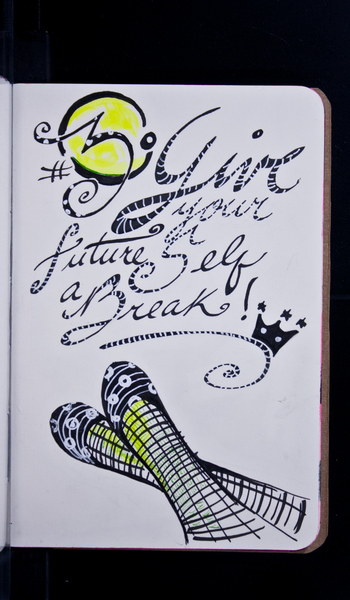 #3.
Give
your
future Self
a Break!